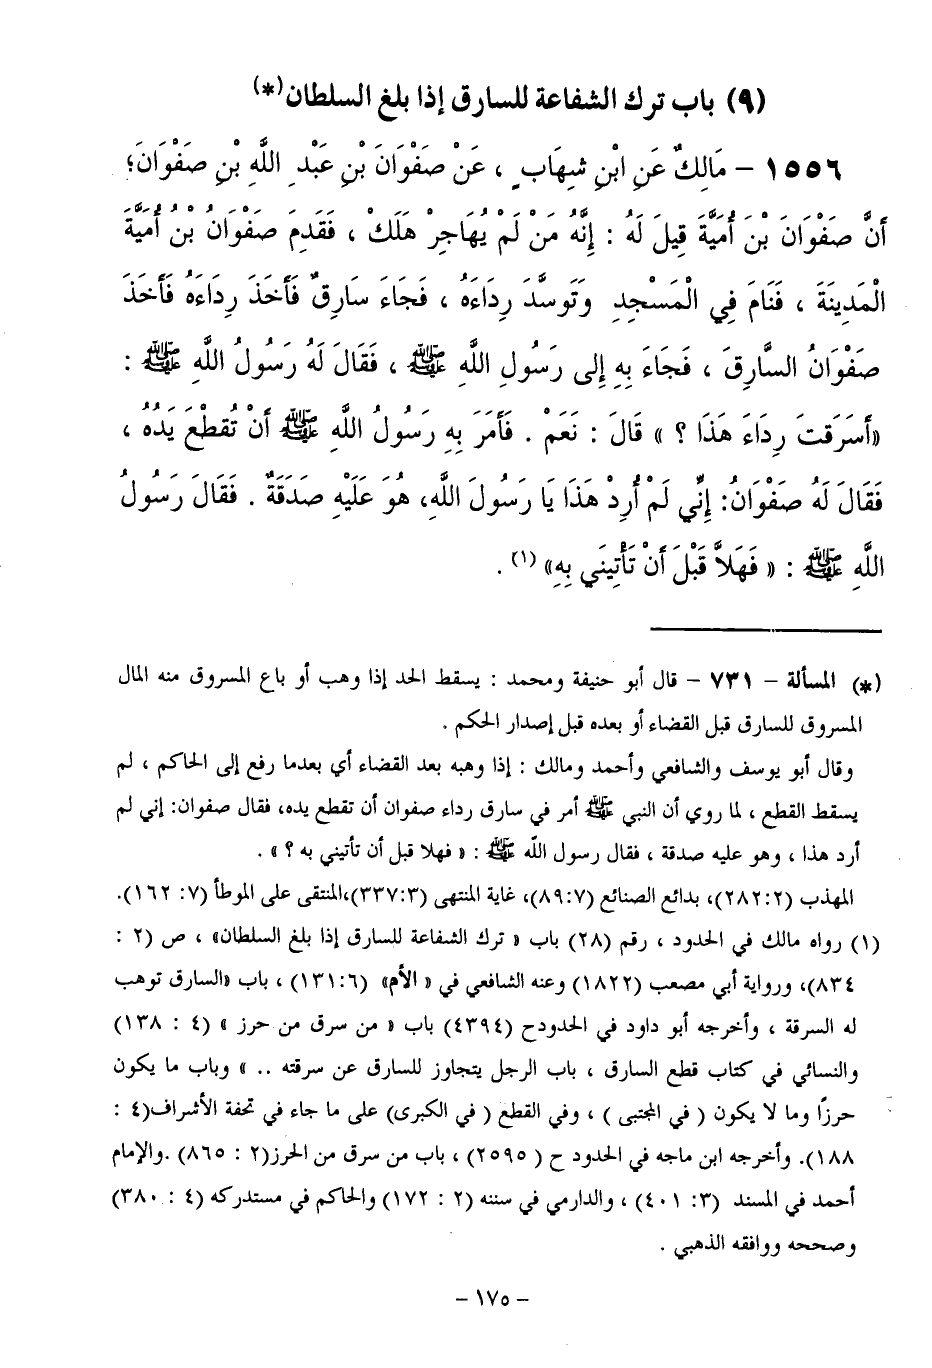 (٩) باب ترك الشفاعة للسارق إذا بلغ السلطان(*)
١٥٥٦ – مَالِكٌ عَنِ ابْنِ شِهَابٍ ، عَنْ صَفْوَانَ بْنِ عَبْدِ اللَّهِ بْنِ صَفْوَانَ؛
أَنَّ صَفْوَانَ بْنَ أُمَيَّةَ قِيلَ لَهُ : إِنَّهُ مَنْ لَمْ يُهَاجِرْ هَلَكَ ، فَقَدِمَ صَفْوَانُ بْنُ أُمَيَّةَ
الْمَدِينَةَ ، فَنَامَ فِي الْمَسْجِدِ وَتَوَسَّدَ رِدَاءَهُ ، فَجَاءَ سَارِقٌ فَأَخَذَ رِدَاءَهُ فَأَخَذَ
صَفْوَانُ السَّارِقَ ، فَجَاءَ بِهِ إِلى رَسُولِ اللَّهِ ﷺ ، فَقَالَ لَهُ رَسُولُ اللَّهِ ﷺ :
«أَسَرَقتَ رِدَاءَ هَذَا ؟ » قَالَ : نَعَمْ . فَأَمَرَ بِهِ رَسُولُ اللَّهِ ﷺ أَنْ تُقطَعَ يَدُهُ ،
فَقَالَ لَهُ صَفْوَانُ: إِنِّي لَمْ أُرِدْ هَذَا يَا رَسُولَ اللَّهِ، هُوَ عَلَيْهِ صَدَقَةٌ . فَقَالَ رَسُولُ
اللَّهِ ﷺ : « فَهَلاَّ قَبْلَ أَنْ تَأْتِيَنِي بِهِ» (١) .
(*) المسألة – ٧٣١ – قال أبو حنيفة ومحمد : يسقط الحد إذا وهب أو باع المسروق منه المال
المسروق للسارق قبل القضاء أو بعده قبل إصدار الحكم .
وقال أبو يوسف والشافعي وأحمد ومالك : إذا وهبه بعد القضاء أي بعدما رفع إلى الحاكم ، لم
يسقط القطع ، لما روي أن النبي ﷺ أمر في سارق رداء صفوان أن تقطع يده، فقال صفوان: إني لم
أرد هذا ، وهو عليه صدقة ، فقال رسول الله ﷺ : « فهلا قبل أن تأتيني به ؟ » .
المهذب (٢٨٢:٢)، بدائع الصنائع (٨٩:٧)، غاية المنتهى (٣٣٧:٣)،المنتقى على الموطأ (٧: ١٦٢).
(١) رواه مالك في الحدود ، رقم (٢٨) باب « ترك الشفاعة للسارق إذا بلغ السلطان» ، ص (٢ :
٨٣٤)، ورواية أبي مصعب (١٨٢٢) وعنه الشافعي في « الأم» (١٣١:٦) ، باب «السارق توهب
له السرقة ، وأخرجه أبو داود في الحدودح (٤٣٩٤) باب « من سرق من حرز » (٤ : ١٣٨)
والنسائي في كتاب قطع السارق ، باب الرجل يتجاوز للسارق عن سرقته .. » وباب ما يكون
حرزًا وما لا يكون ( في المجتبى ) ، وفي القطع ( في الكبرى) على ما جاء في تحفة الأشراف(٤ :
١٨٨). وأخرجه ابن ماجه في الحدود ح ( ٢٥٩٥) ، باب من سرق من الحرز(٢ : ٨٦٥) .والإمام
أحمد في المسند (٣: ٤٠١) ، والدارمي في سننه (٢ : ١٧٢) والحاكم في مستدركه (٤ : ٣٨٠)
وصححه ووافقه الذهبي .
– ١٧٥ –